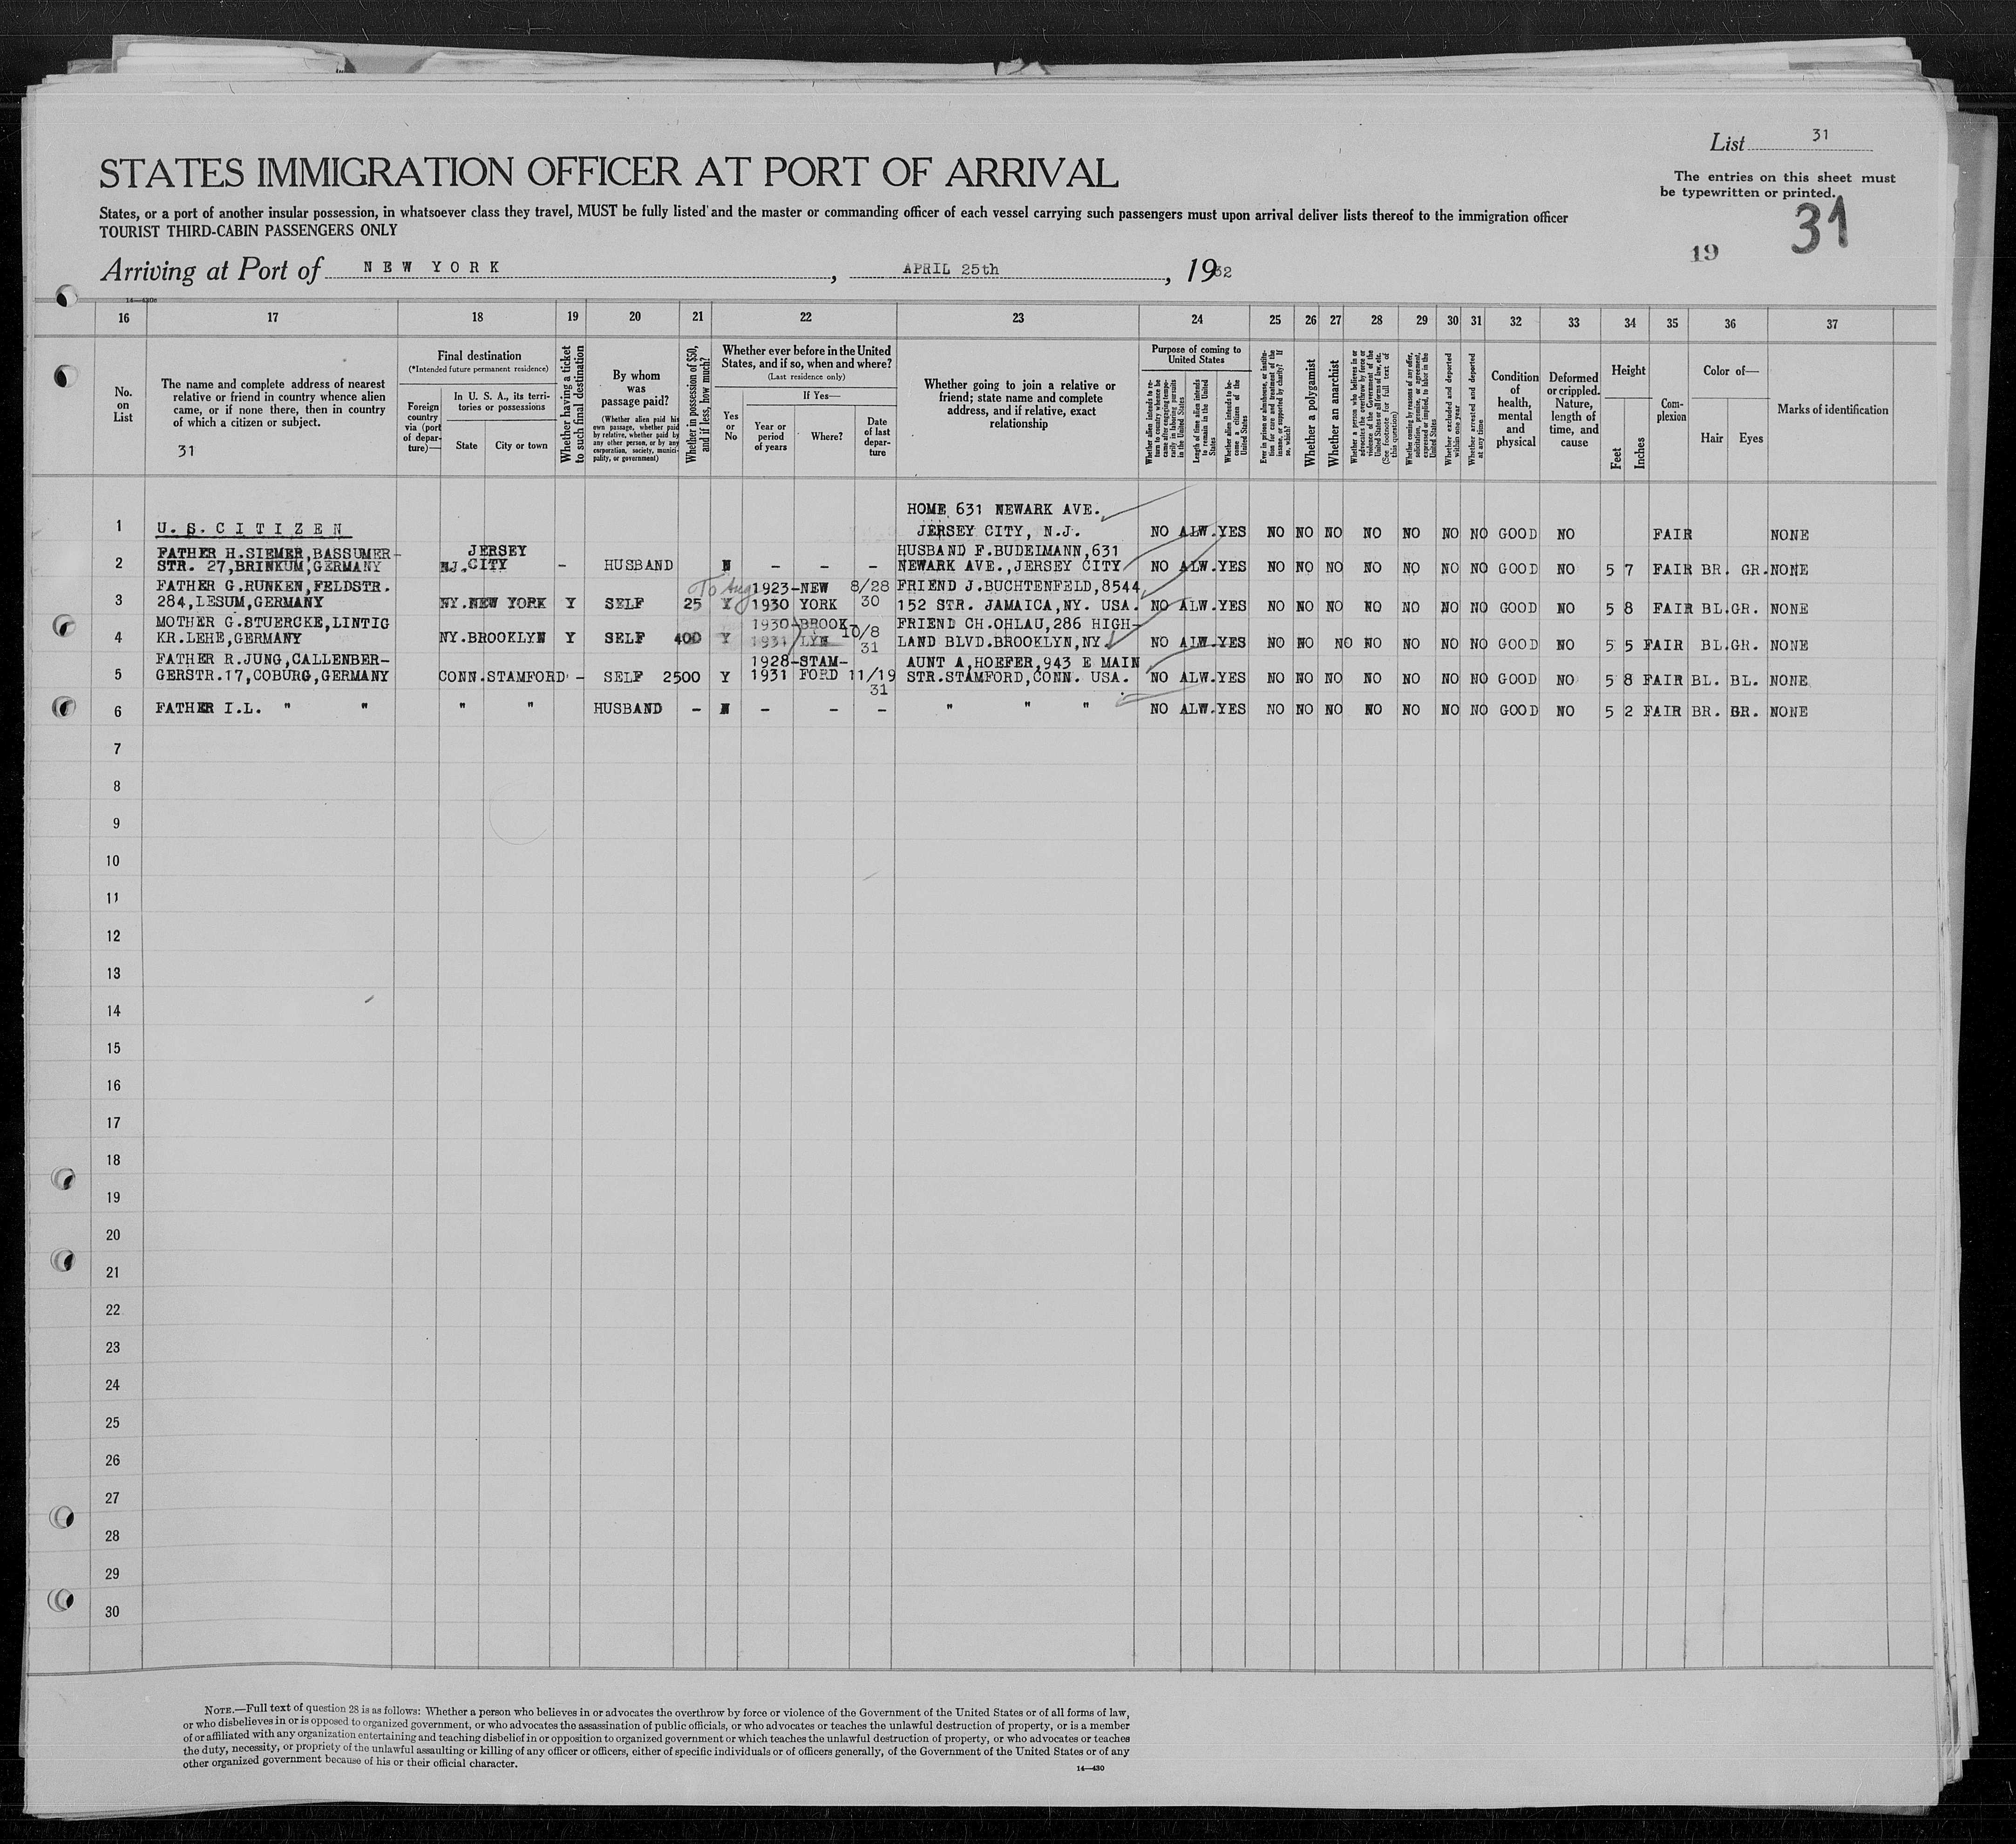 List 31
The entries on this sheet must
be typewritten or printed.
31
19
STATES IMMIGRATION OFFICER AT PORT OF ARRIVAL
States, or a port of another insular possession, in whatsoever class they travel, MUST be fully listed and the master or commanding officer of each vessel carrying such passengers must upon arrival deliver lists thereof to the immigration officer
TOURIST THIRD-CABIN PASSENGERS ONLY
Arriving at Port of NEW YORK, APRIL 25th, 1932
14—430
16 17 18 19 20 21 22 23 24 25 26 27 28 29 30 31 32 33 34 35 36 37
No. on List
The name and complete address of nearest
relative or friend in country whence alien
came, or if none there, then in country
of which a citizen or subject.
31
Final destination
(*Intended future permanent residence)
Foreign country via (port of departure)—
In U. S. A., its territories or possessions
State City or town
Whether having a ticket to such final destination
By whom was passage paid?
(Whether alien paid his own passage, whether paid by relative, whether paid by any other person, or by any corporation, society, municipality, or government)
Whether in possession of $50, and if less, how much?
Whether ever before in the United
States, and if so, when and where?
(Last residence only)
Yes or No
If Yes—
Year or period of years
Where?
Date of last departure
Whether going to join a relative or
friend; state name and complete
address, and if relative, exact
relationship
Purpose of coming to United States
Whether alien intends to return to country whence he came after engaging temporarily in laboring pursuits in the United States
Length of time alien intends to remain in the United States
Whether alien intends to become a citizen of the United States
Ever in prison or almshouse, or institution for care and treatment of the insane, or supported by charity? If so, which?
Whether a polygamist
Whether an anarchist
Whether a person who believes in or advocates the overthrow by force or violence of the Government of the United States or all forms of law, etc. (See footnote for full text of this question)
Whether coming by reasons of any offer, solicitation, promise, or agreement, expressed or implied, to labor in the United States
Whether excluded and deported within one year
Whether arrested and deported at any time
Condition of health, mental and physical
Deformed or crippled. Nature, length of time, and cause
Height
Feet Inches
Complexion
Color of—
Hair Eyes
Marks of identification
HOME 631 NEWARK AVE.
1 U.S.CITIZEN JERSEY CITY, N.J. NO ALW. YES NO NO NO NO NO NO NO GOOD NO FAIR NONE
FATHER H.SIEMER,BASSUMER- JERSEY HUSBAND F.BUDEIMANN,631
2 STR. 27,BRINKUM,GERMANY NJ.CITY - HUSBAND N - - - NEWARK AVE.,JERSEY CITY NO ALW. YES NO NO NO NO NO NO NO GOOD NO 5 7 FAIR BR. GR. NONE
FATHER G.RUNKEN,FELDSTR. To Aug 1923-NEW 8/28 FRIEND J.BUCHTENFELD,8544
3 284,LESUM,GERMANY NY.NEW YORK Y SELF 25 Y 1930 YORK 30 152 STR. JAMAICA,NY. USA. NO ALW. YES NO NO NO NO NO NO NO GOOD NO 5 8 FAIR BL.GR. NONE
MOTHER G.STUERCKE,LINTIG 1930-BROOK- 10/8 FRIEND CH.OHLAU,286 HIGH-
4 KR.LEHE,GERMANY NY.BROOKLYN Y SELF 400 Y 1931 LYN 31 LAND BLVD.BROOKLYN,NY. NO ALW. YES NO NO NO NO NO NO NO GOOD NO 5 5 FAIR BL.GR. NONE
FATHER R.JUNG,CALLENBER- 1928-STAM- AUNT A,HOEFER,943 E MAIN
5 GERSTR.17,COBURG,GERMANY CONN.STAMFORD - SELF 2500 Y 1931 FORD 11/19 31 STR.STAMFORD,CONN. USA. NO ALW. YES NO NO NO NO NO NO NO GOOD NO 5 8 FAIR BL. BL. NONE
6 FATHER I.L. " " " " HUSBAND - N - - - " " " NO ALW. YES NO NO NO NO NO NO NO GOOD NO 5 2 FAIR BR. GR. NONE
7
8
9
10
11
12
13
14
15
16
17
18
19
20
21
22
23
24
25
26
27
28
29
30
NOTE.—Full text of question 28 is as follows: Whether a person who believes in or advocates the overthrow by force or violence of the Government of the United States or of all forms of law,
or who disbelieves in or is opposed to organized government, or who advocates the assassination of public officials, or who advocates or teaches the unlawful destruction of property, or is a member
of or affiliated with any organization entertaining and teaching disbelief in or opposition to organized government or which teaches the unlawful destruction of property, or who advocates or teaches
the duty, necessity, or propriety of the unlawful assaulting or killing of any officer or officers, either of specific individuals or of officers generally, of the Government of the United States or of any
other organized government because of his or their official character.
14—430